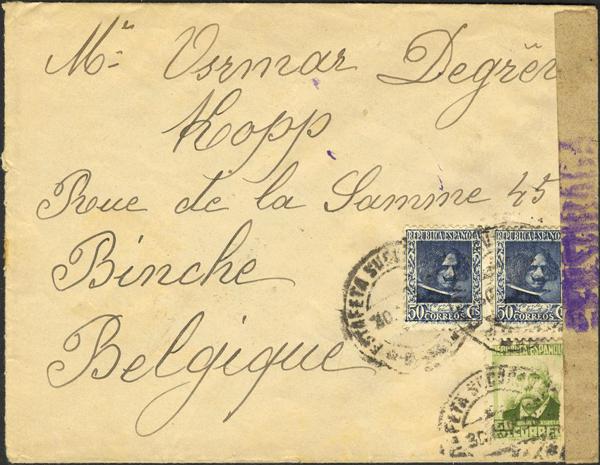 Mr Usmar Degrër
Kopp
Rue de la Samme 45
Binche
Belgique
REPUBLICA ESPAÑOLA
50 CORREOS Cs
REPUBLICA ESPAÑOLA
50 CORREOS C
ESTAFETA SUC
30
REPUBLICA ESPAÑOL
CORRE
AFETA SUCURS
30